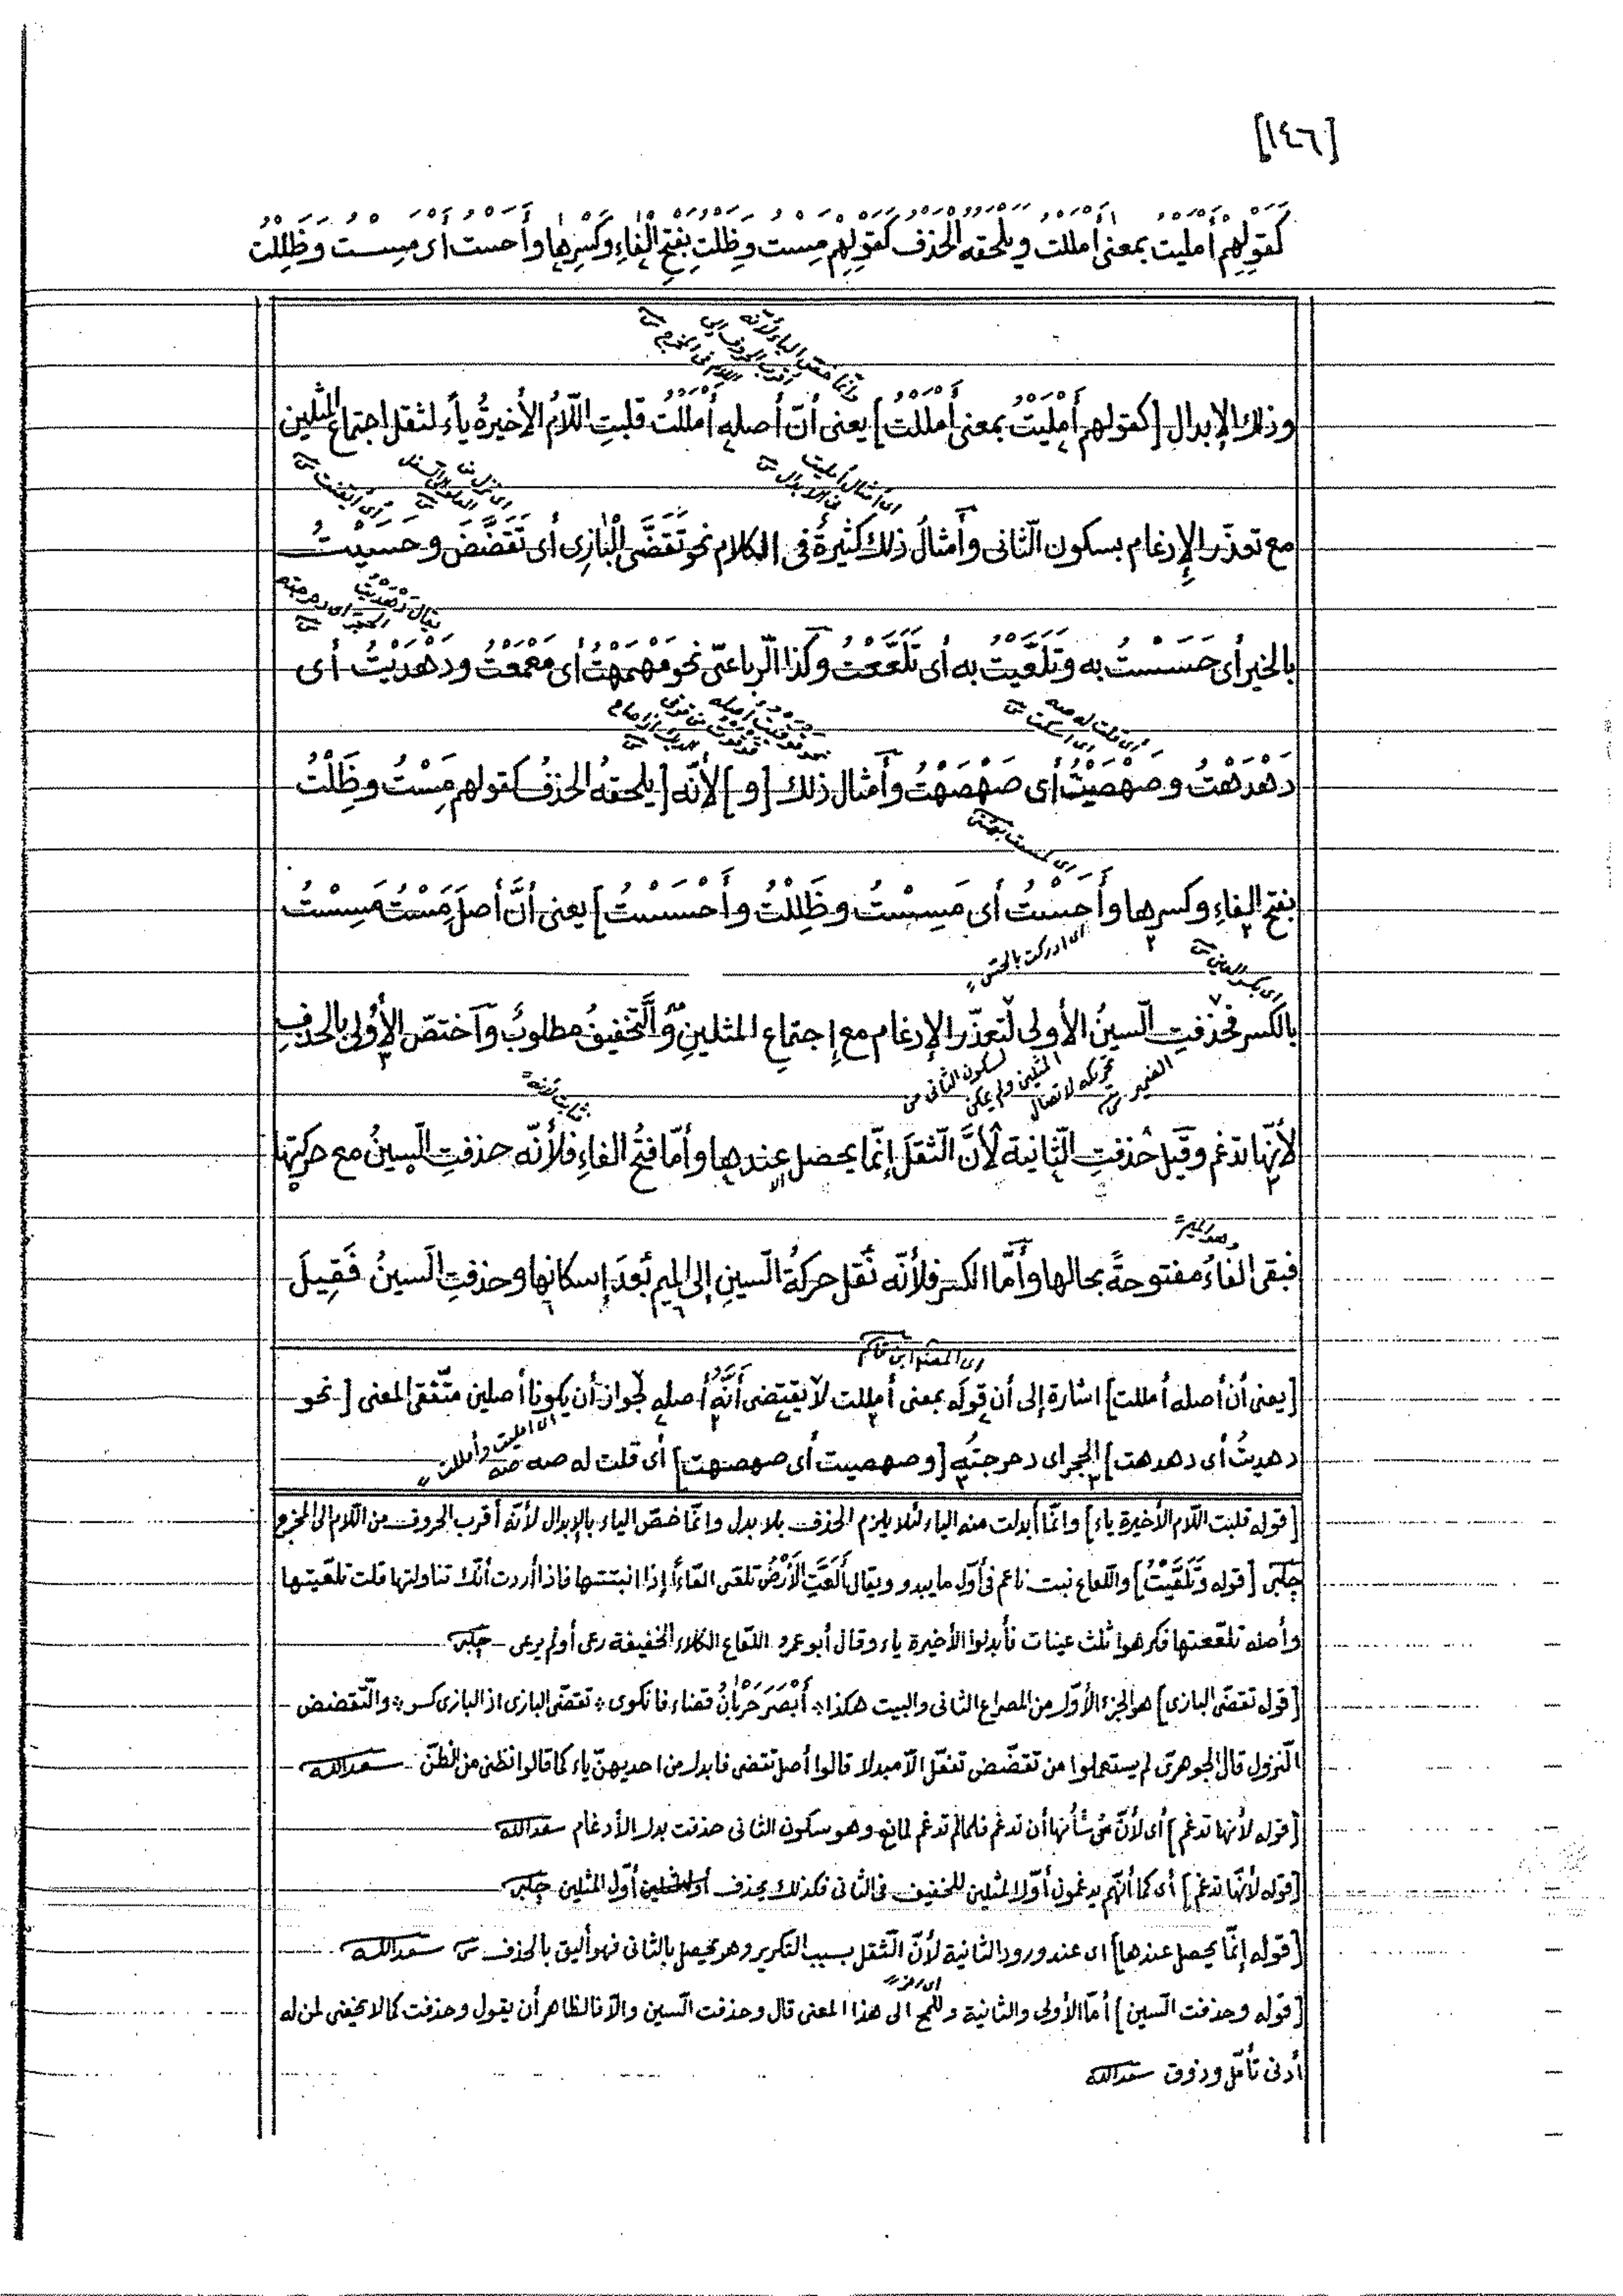 [١٤٦]
كَقَوْلِهِمْ أَمْلَيْتُ بمعنى أَمْلَلْتُ ويلحقه الحذف كقولهم مست وظلت بفتح الفاء وكسرها وأحست أى مسست وظللت
وذلك الإبدال [كقولهم أَمْلَيْتُ بمعنى أَمْلَلْتُ] يعنى أنّ أصله أمللت قلبت اللّامُ الأخيرةُ ياءً لثقل اجتماع المثلين
مع تعذّر الإدغام بسكون الثّانى وأمثالُ ذلك كثيرةٌ فى الكلام نحو تَقَضَّى الْبَازِى أى تَقَضَّضَ وحَسَيْتُ
بالخير أى حَسَسْتُ به وتَلَعَّيْتُ به أى تَلَعَّعْتُ وكذا الرّباعىّ نحو مَهْمَهْتُ أى مَعْمَعْتُ ودَهْدَيْتُ أى
دَهْدَهْتُ وصَهْصَيْتُ أى صَهْصَهْتُ وأمثال ذلك [و] لأنّه [يلحقهُ الحذفُ كقولهم مَِسْتُ وظَِلْتُ
بفتح الفاءِ وكسرها وأَحَسْتُ أى مَسِسْتُ وظَلِلْتُ وأَحْسَسْتُ] يعنى أنَّ أصلَ مَسْتُ مَسِسْتُ
بالكسر فحُذفتِ السّينُ الأولى لتعذّر الإدغام مع إجتماع المثلينِ والتّخفيفُ مطلوبٌ وٱختصّ الأولى بالحذفِ
لأنّها تدغم وقيل حُذفتِ الثّانية لأنَّ الثّقلَ إنّما يحصل عندها وأمّا فتحُ الفاءِ فلأنّه حذفتِ السّينُ مع حركتها
فبقى الفاءُ مفتوحةً بحالها وأمّا الكسر فلأنّه نُقل حركةُ السّينِ إلى الميم بَعدَ إسكانها وحذفتِ السّينُ فَقِيلَ
[يعنى أن أصله أمللت] اشارة إلى أن قوله بمعنى أمللت لا يقتضى أنّه أصله لجواز أن يكونا أصلين متّفقى المعنى [نحو
دهديتُ أى دهدهت] الحجر اى دحرجتُه [وصهصيت أى صهصهت] أى قلت له صه صه
[قوله قلبت اللّام الأخيرة ياء] وانّما أبدلت منه الياء لئلا يلزم الحذف بلا بدل وانّما خصّ الياء بالإبدال لأنّه أقرب الحروف من اللّام الى المخرج
چلبى [قوله وَتَلَعَّيْتُ] واللّعاع نبت ناعم فى أوّل ما يبدو ويقال أَلَعَّتِ الْأَرْضُ تلعى العاءًا إذا انبتتها فاذا أردت أنّك تناولتها قلت تلعّيتها
وأصله تلعّعتها فكرهوا ثلث عينات فأبدلوا الأخيرة ياء وقال أبو عمرو اللّعاع الكلاء الخفيفة رعى أو لم يرعى چلبى
[قوله تقضّى البازى] هو الجزء الأوّل من المصراع الثانى والبيت هكذا ٭ أَبْصَرَ خَرْبَانُ فضاء فانكوى ٭ تقضّى البازى اذ البازى كسر ٭ والتّقضّض
النّزول قال الجوهرىّ لم يستعملوا من تقضّض تفعّل الّا مبدلا قالوا أصل تقضى فابدل من احديهنّ ياء كما قالوا تظنى من الظنّ سعد الله
[قوله لأنها تدغم] أى لأنّ من شأنها أن تدغم فلما لم تدغم لمانع وهو سكون الثانى حذفت بدل الأدغام سعد الله
[قوله لأنّها تدغم] أى كما أنّهم يدغمون أوّل المثلين للخفيف فى الثانى فكذلك يحذف أوّل المثلين چلبى
[قوله إنّما يحصل عندها] اى عند ورود الثانية لأنّ الثّقل بسبب التكرير وهو يحصل بالثانى فهو أليق بالحذف سعد الله
[قوله وحذفت السّين] أمّا الأولى والثانية وللمح الى هذا المعنى قال وحذفت السّين والّا فالظاهر أن يقول وحذفت كما لا يخفى لمن له
أدنى تأمّل وذوق سعد الله